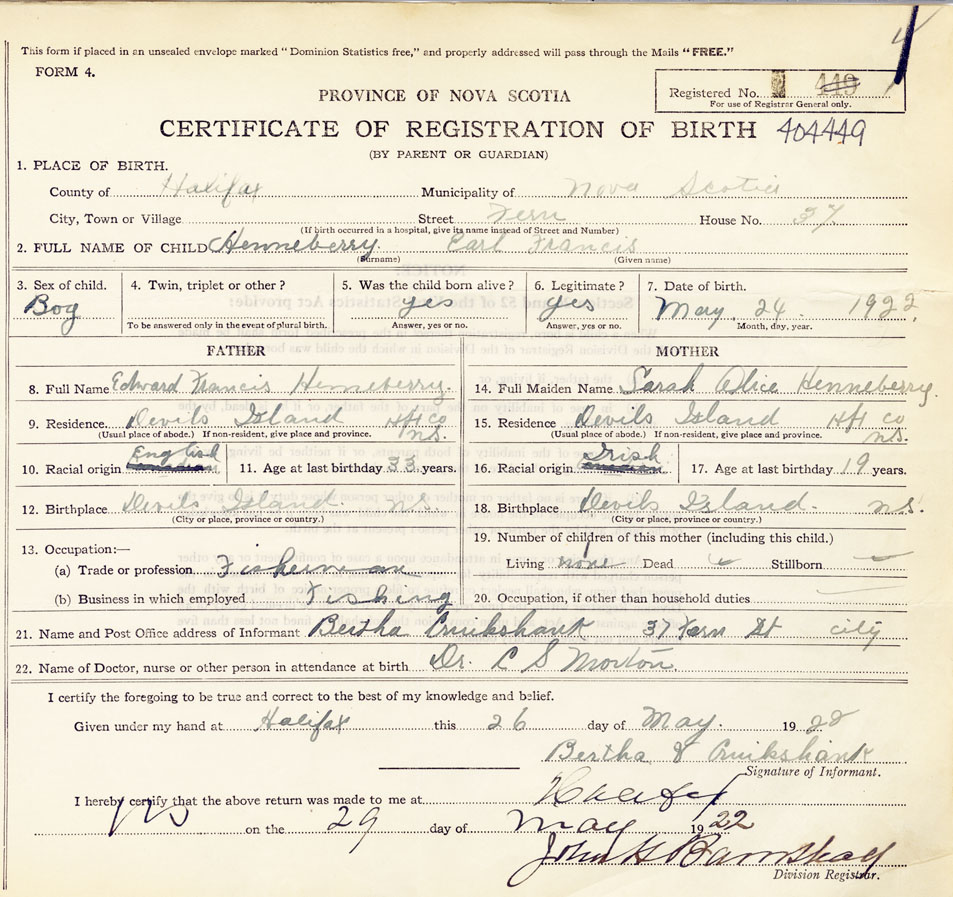 This form if placed in an unsealed envelope marked "Dominion Statistics free," and properly addressed will pass through the Mails "FREE."
FORM 4.
Registered No. 449
For use of Registrar General only.
PROVINCE OF NOVA SCOTIA
CERTIFICATE OF REGISTRATION OF BIRTH 404449
(BY PARENT OR GUARDIAN)
1. PLACE OF BIRTH.
County of Halifax Municipality of Nova Scotia
City, Town or Village Street Fern House No. 37
(If birth occurred in a hospital, give its name instead of Street and Number)
2. FULL NAME OF CHILD Henneberry Earl Francis
(Surname) (Given name)
3. Sex of child. 4. Twin, triplet or other? 5. Was the child born alive? 6. Legitimate? 7. Date of birth.
Boy yes yes May. 24. 1922.
To be answered only in the event of plural birth. Answer, yes or no. Answer, yes or no. Month, day, year.
FATHER MOTHER
8. Full Name Edward Francis Henneberry. 14. Full Maiden Name Sarah Alice Henneberry.
9. Residence Devils Island Hfx Co N.S. 15. Residence Devils Island Hfx Co N.S.
(Usual place of abode.) If non-resident, give place and province. (Usual place of abode.) If non-resident, give place and province.
10. Racial origin English 11. Age at last birthday 33 years. 16. Racial origin Irish 17. Age at last birthday 19 years.
12. Birthplace Devils Island. N.S. 18. Birthplace Devils Island. N.S.
(City or place, province or country.) (City or place, province or country.)
13. Occupation:— 19. Number of children of this mother (including this child.)
(a) Trade or profession Fisherman Living none Dead Stillborn
(b) Business in which employed Fishing 20. Occupation, if other than household duties
21. Name and Post Office address of Informant Bertha Cruikshank 37 Fern St City
22. Name of Doctor, nurse or other person in attendance at birth Dr. C S Morton
I certify the foregoing to be true and correct to the best of my knowledge and belief.
Given under my hand at Halifax this 26 day of May. 1922
Bertha Cruikshank
Signature of Informant.
I hereby certify that the above return was made to me at Halifax
NS on the 29 day of May 1922
John H
Division Registrar.